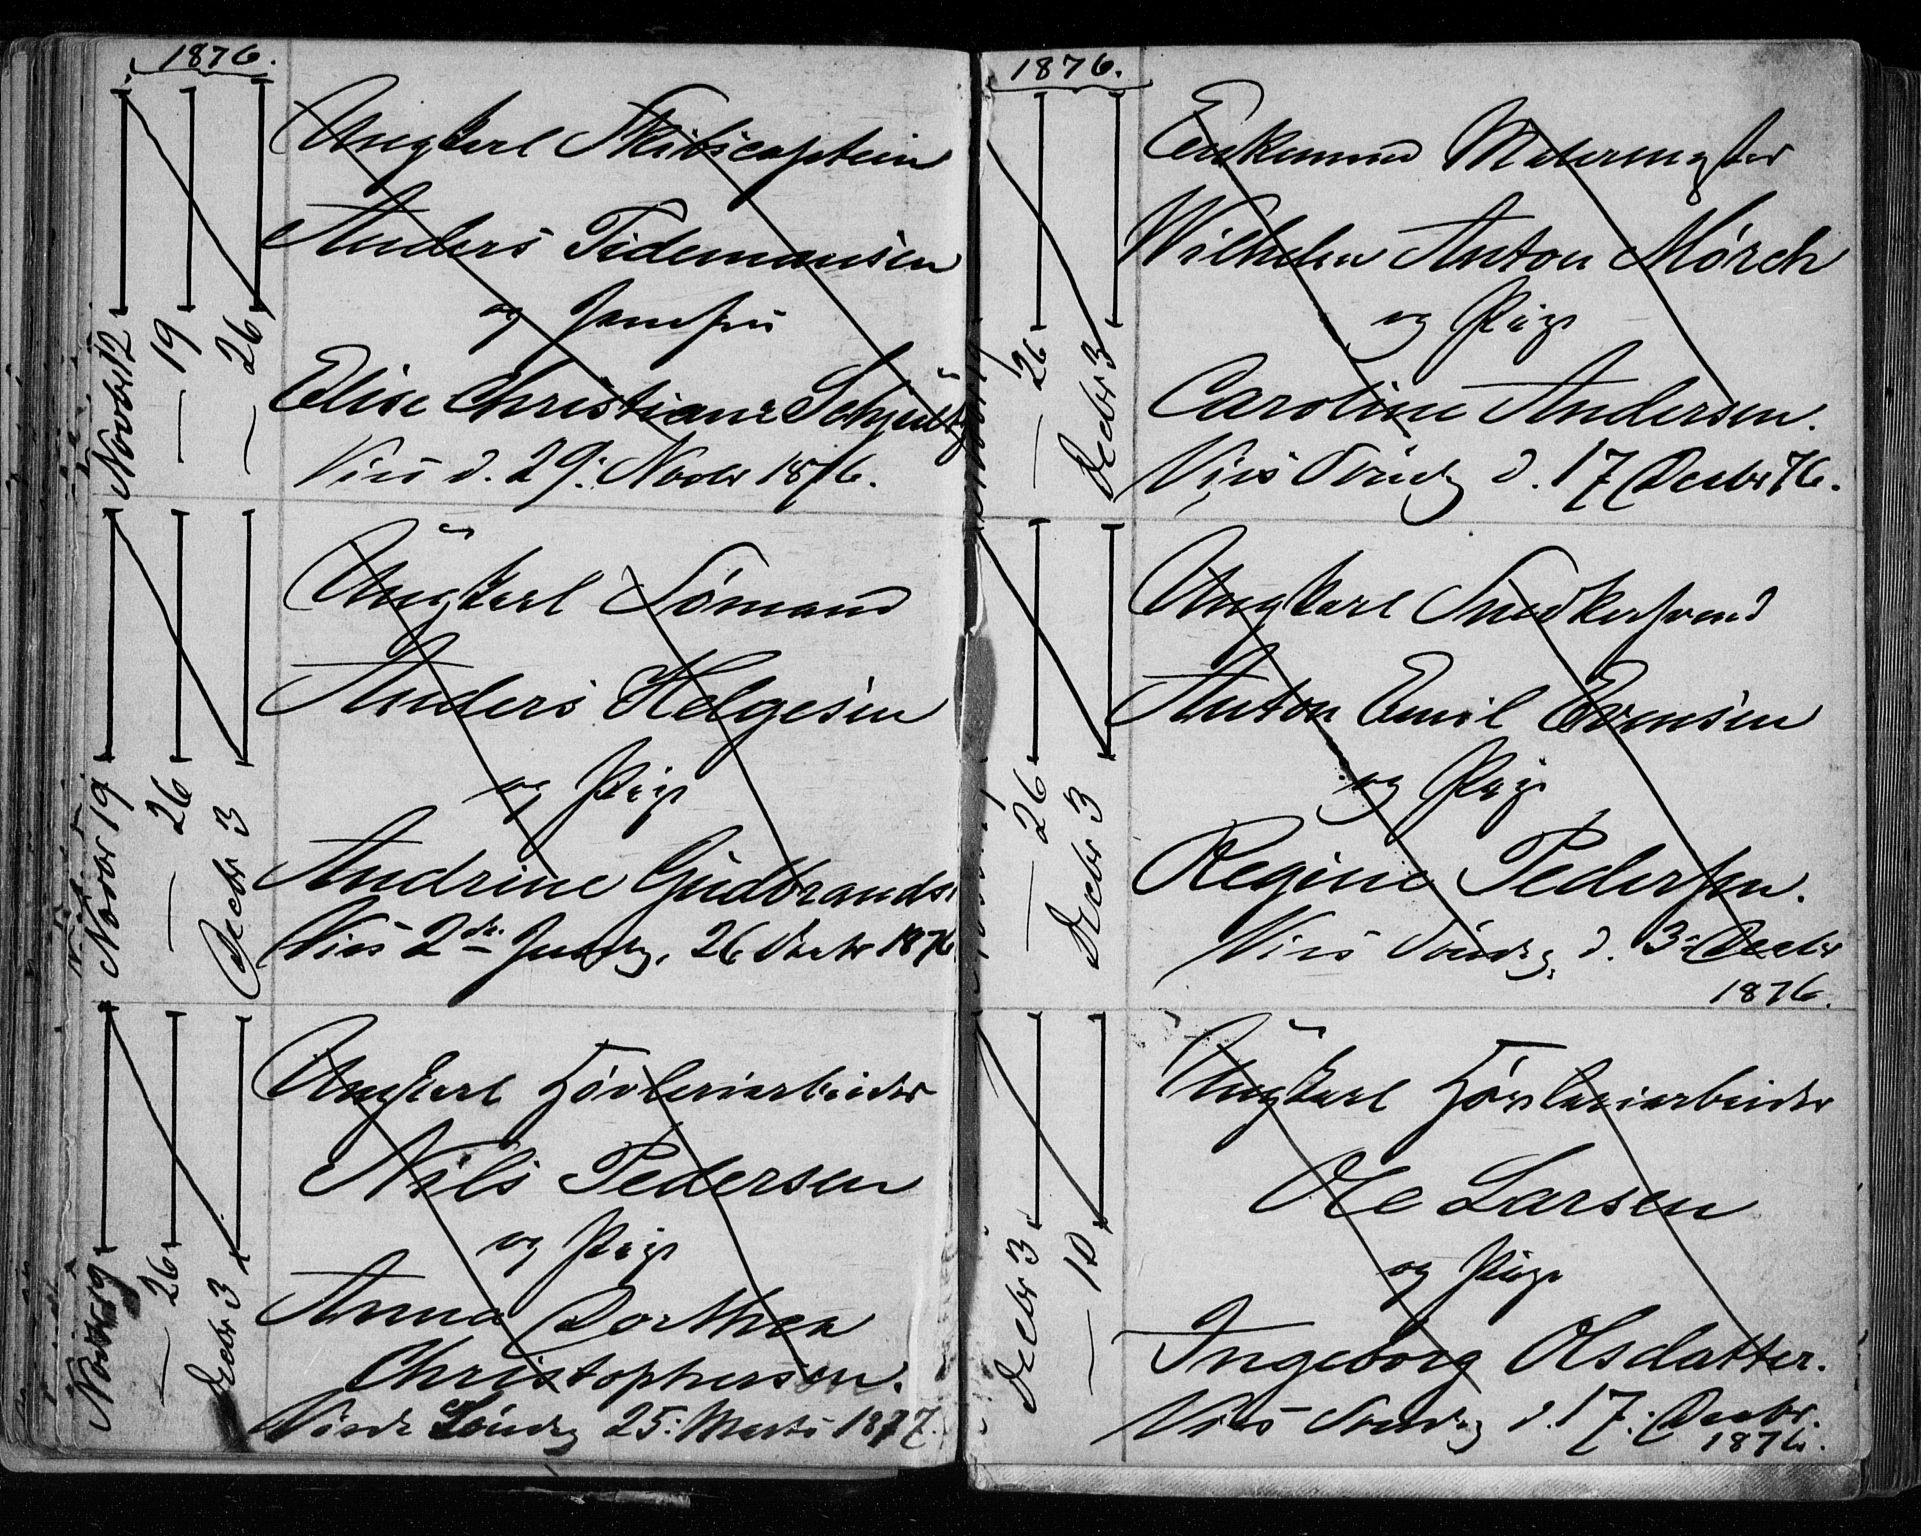 1876.
Novbr 12
— 19
— 26
Ungkarl Skibscaptein
Anders Tidemansen
og Jomfru
Elise Christiane Schjøtt
Vies d. 29: Novbr 1876.
Novbr 19
— 26
Decbr 3
Ungkarl Sömand
Anders Helgesen
og Pige
Andrine Gudbrands.
Vies 2den Juledag, 26 Decbr 1876
Novbr 19
— 26
Decbr 3
Ungkarl Hövleriarbeider
Nils Pedersen
og Pige
Anna Dorthea
Christophersen.
Viede Söndag 25: Marts 1877.
1876.
— 26
Decbr 3
Enkemand Malermester
Wilhelm Anton Mörch
og Pige
Caroline Andersen.
Vies Söndag d. 17 Decbr 76.
— 26
Decbr 3
Ungkarl Snedkersvend
Anton Emil Evensen
og Pige
Regine Pedersen.
Vies Söndag d. 3: Decbr
1876.
Decbr 3
— 10
Ungkarl Hövleriarbeider
Ole Larsen
og Pige
Ingeborg Olsdatter.
Vies Söndag d. 17: Decbr.
1876.